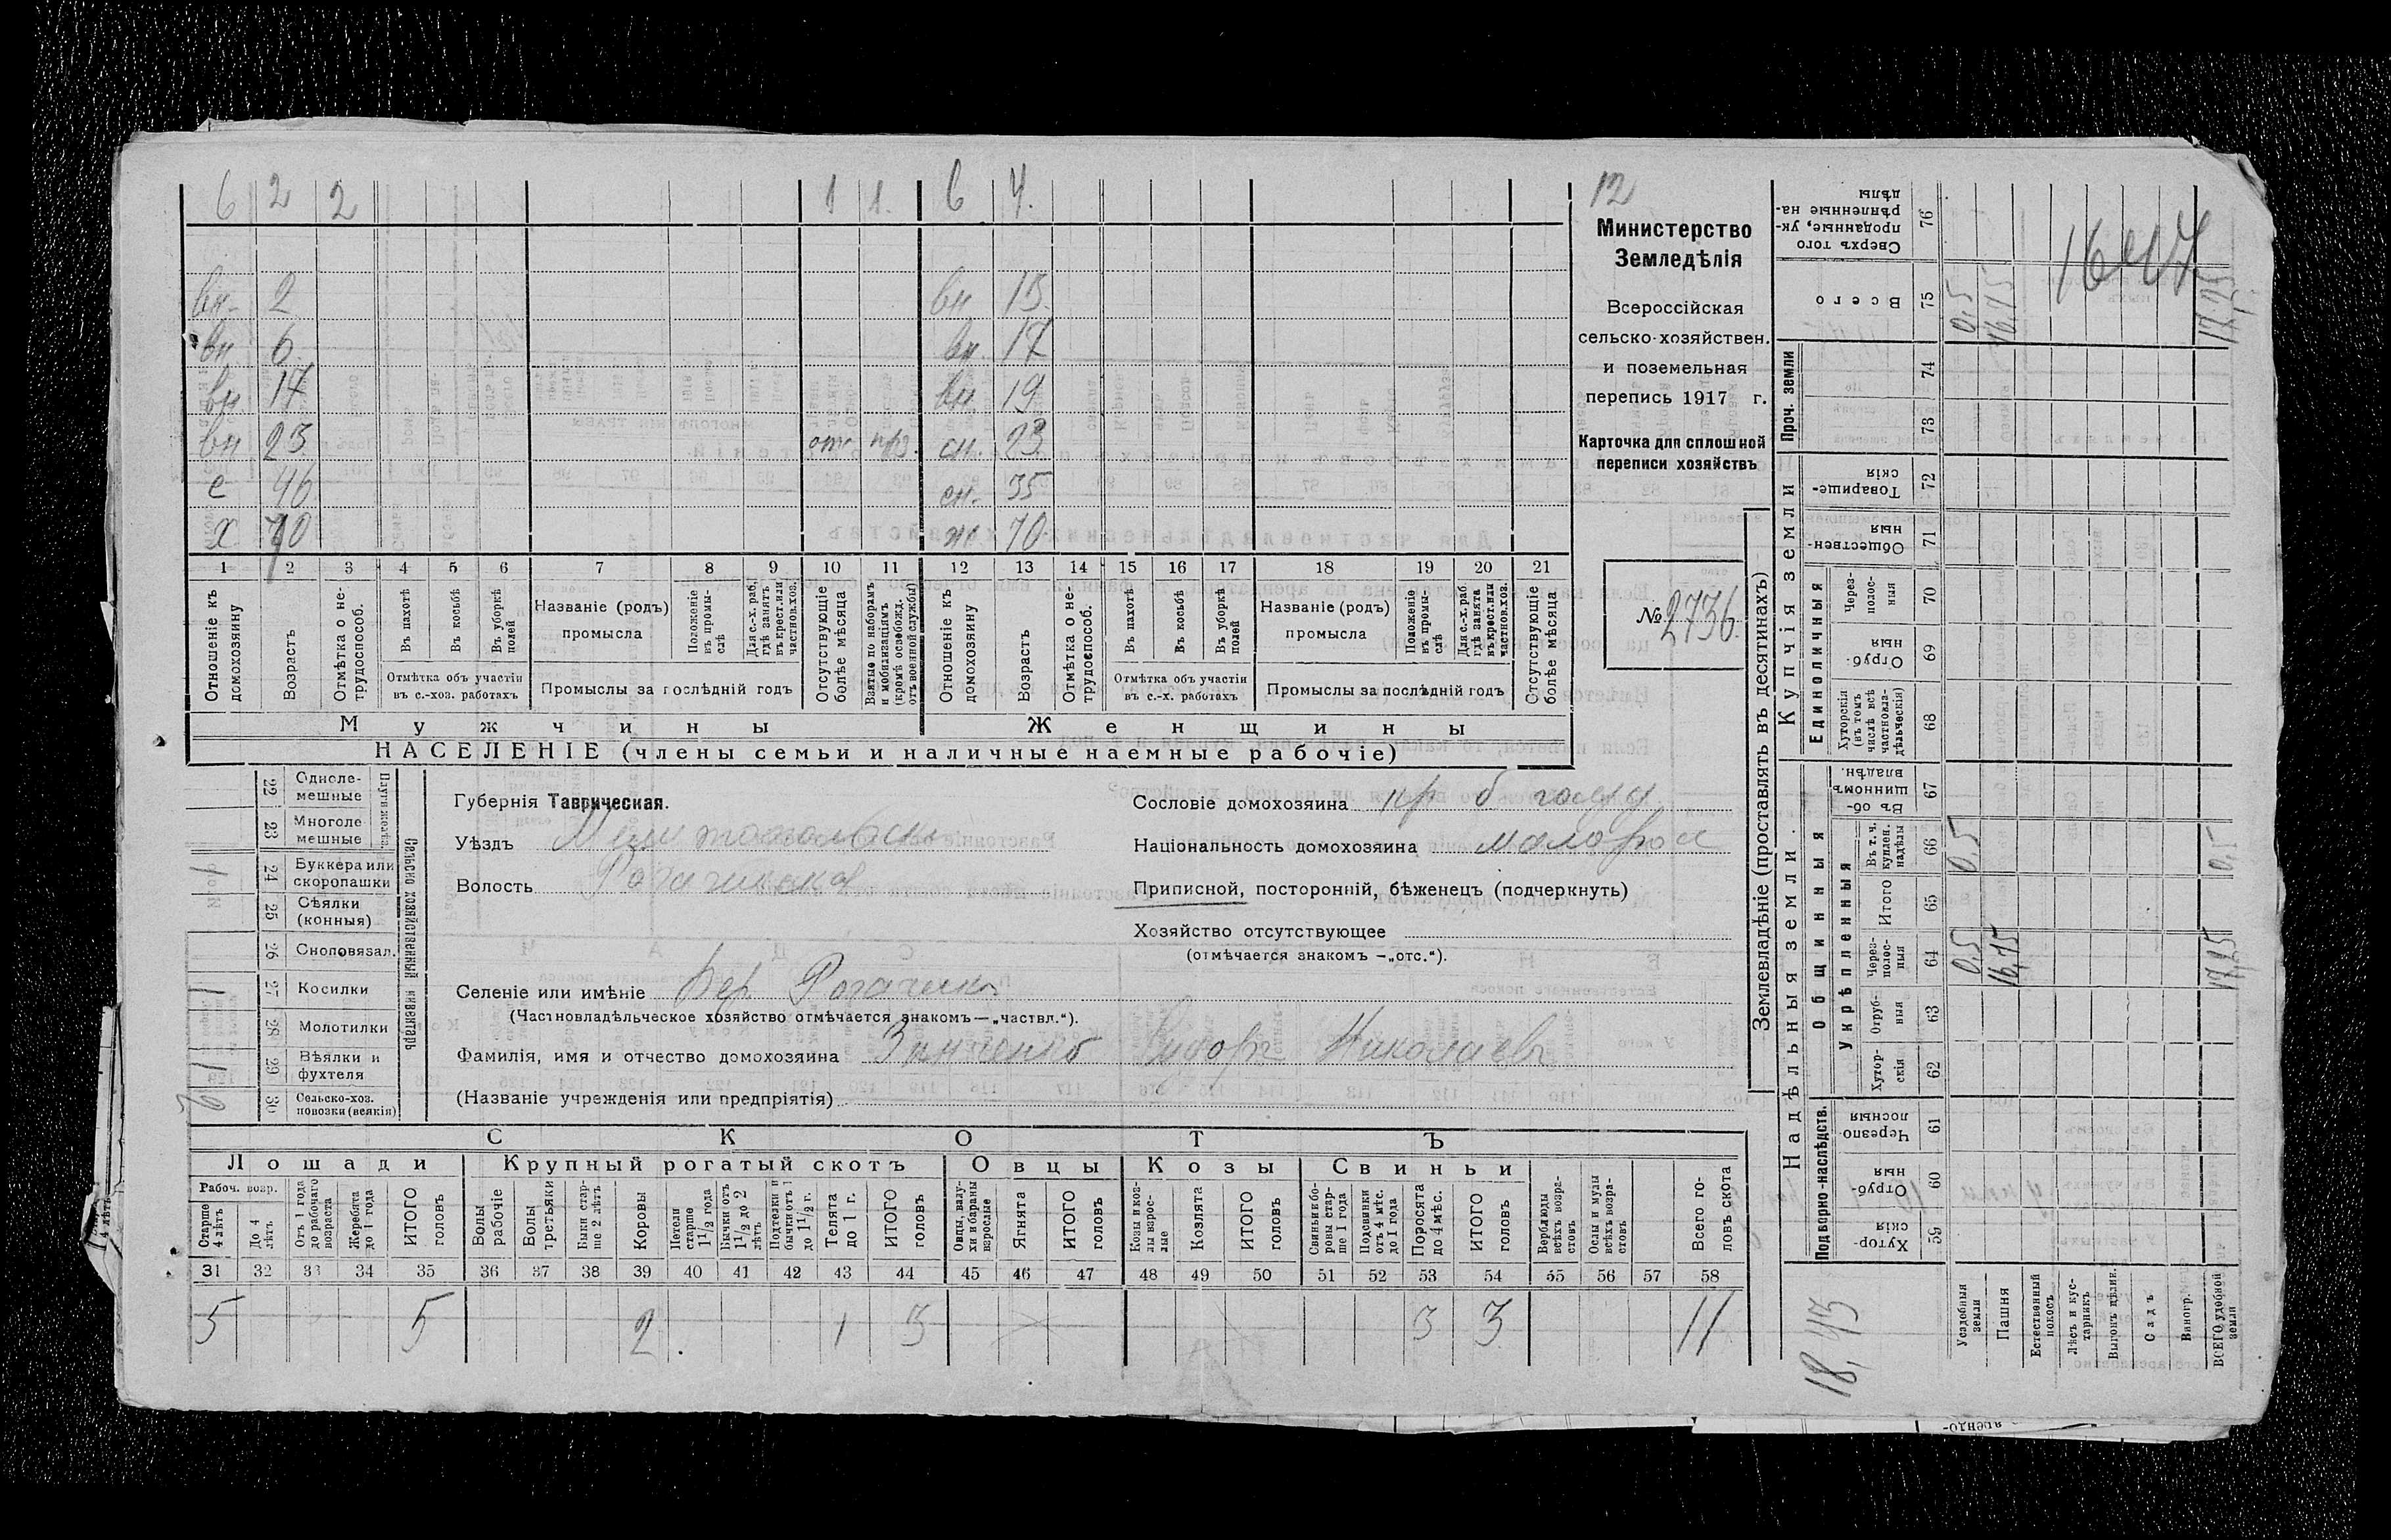 6 2 2 1 1. 6 4.
вн. 2 вн 15.
вн 6 вн. 17
вн 17 вн 19
вн 25 отс прз. сн. 23.
с 46 сн. 35
х 70 ж. 70.
1 2 3 4 5 6 7 8 9 10 11 12 13 14 15 16 17 18 19 20 21
Отношеніе къ домохозяину
Возрастъ
Отмѣтка о не-трудоспособ.
Въ пахотѣ
Въ косьбѣ
Въ уборкѣ полей
Отмѣтка объ участіи въ с.-хоз. работахъ
Названіе (родъ) промысла
Положеніе въ промы-слѣ
Для с.-х. раб. гдѣ занятъ въ крест. или частнов. хоз.
Промыслы за послѣдній годъ
Отсутствующіе болѣе мѣсяца
Взятые по наборамъ и мобилизаціямъ (кромѣ освобожд. отъ военной службы)
Отношеніе къ домохозяину
Возрастъ
Отмѣтка о не-трудоспособ.
Въ пахотѣ
Въ косьбѣ
Въ уборкѣ полей
Отмѣтка объ участіи въ с.-х. работахъ
Названіе (родъ) промысла
Положеніе въ промы-слѣ
Для с.-х. раб. гдѣ занята въ крест. или частнов. хоз.
Промыслы за послѣдній годъ
Отсутствующіе болѣе мѣсяца
Мужчины Женщины
НАСЕЛЕНІЕ (члены семьи и наличные наемные рабочіе)
12
Министерство
Земледѣлія
Всероссійская
сельско-хозяйствен.
и поземельная
перепись 1917 г.
Карточка для сплошной
переписи хозяйствъ
№ 2736.
Сельско хозяйственный инвентарь
Плуги желѣз.
22 Одноле-мешные
23 Многоле мешные
24 Буккера или скоропашки 1
25 Сѣялки (конныя)
26 Сноповязал.
27 Косилки 1
28 Молотилки
29 Вѣялки и фухтеля 1
30 Сельско-хоз. повозки (всякія) 2
Губернія Таврическая.
Уѣздъ Мелитопольскі
Волость Рогачикская
Сословіе домохозяина кр б госуд
Національность домохозяина малорос
Приписной, посторонній, бѣженецъ (подчеркнуть)
Хозяйство отсутствующее
(отмѣчается знакомъ —„отс.“).
Селеніе или имѣніе Вер Рогачикъ
(Частновладѣльческое хозяйство отмѣчается знакомъ—„частвл.“).
Фамилія, имя и отчество домохозяина Зинченко Николаевъ
(Названіе учрежденія или предпріятія)
СКОТЪ
Лошади Крупный рогатый скотъ Овцы Козы Свиньи
Рабоч. возр.
Старше 4 лѣтъ
До 4 лѣтъ
Отъ 1 года до рабочаго возраста
Жеребята до 1 года
ИТОГО головъ
Волы рабочіе
Волы третьяки
Быки стар-ше 2 лѣтъ
Коровы
Нетели старше 1 1/2 года
Бычки отъ 1 1/2 до 2 лѣтъ
Подтелки и бычки отъ 1 до 1 1/2 г.
Телята до 1 г.
ИТОГО головъ
Овцы, валу-хи и бараны взрослые
Ягнята
ИТОГО головъ
Козы и коз-лы взрос-лые
Козлята
ИТОГО головъ
Свиньи и бо-ровы стар-ше 1 года
Подсвинки отъ 4 мѣс. до 1 года
Поросята до 4 мѣс.
ИТОГО головъ
Верблюды всѣхъ возра-стовъ
Ослы и мулы всѣхъ возра-стовъ
Всего го-ловъ скота
31 32 33 34 35 36 37 38 39 40 41 42 43 44 45 46 47 48 49 50 51 52 53 54 55 56 57 58
5 5 2 1 3 3 3 11
Землевладѣніе (проставлять въ десятинахъ)
Купчія земли
Надѣльныя земли.
Сверхъ того проданные, ук-рѣпленные на-дѣлы 76
Всего 75 0,5 16,75 17,25
Проч. земли 74 73
Товарище-скія 72
Обществен-ныя 71
Единоличныя
Черезполос-ныя 70
Отруб-ныя 69
Хуторскія (въ томъ числѣ всѣ частновла-дѣльческія) 68
Общинныя
Въ об-щинномъ владѣн. 67
Укрѣпленныя
Въ т. ч. куплен. надѣлы 66 0,5 0,5
Итого 65
Через-полос-ныя 64 0,5 16,75 17,25
Отруб-ныя 63
Хутор-скія 62
Подворно-наслѣдств.
Черезпо лосныя 61
Отруб-ныя 60
Хутор-скія 59
18,43
Усадебныя земли
Пашня
Естественный покосъ
Лѣсъ и кус-тарникъ
Выгонъ цѣлик.
Садъ
Виногр.
ВСЕГО удобной земли